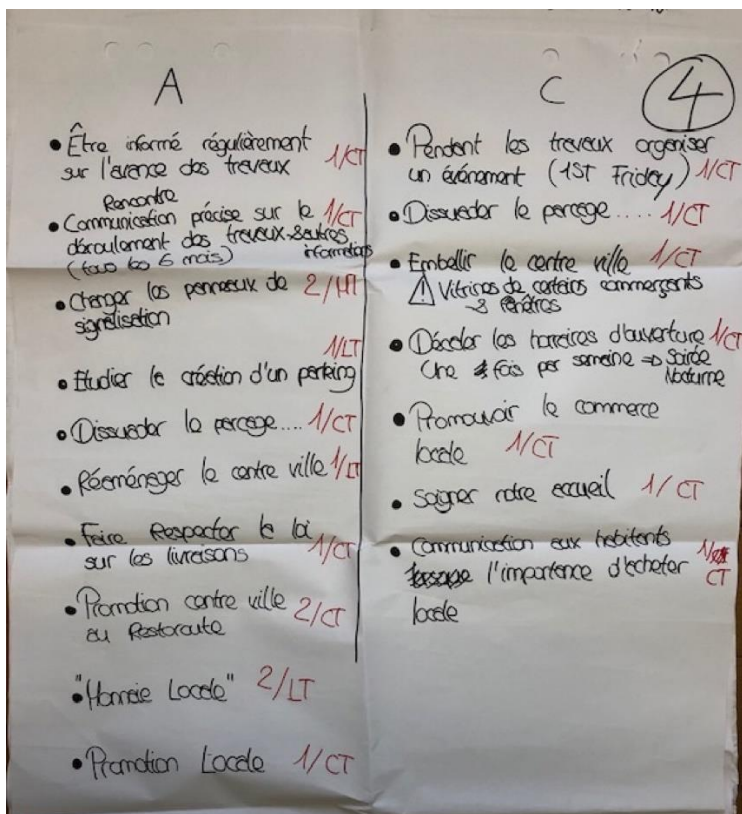 4
A
• Être informé régulièrement 1/CT
sur l'avance des travaux
Rencontre
• Communication précise sur le 1/CT
déroulement des travaux & autres
(tous les 6 mois) informations
• Changer les panneaux de 2/MT
signalisation
1/LT
• Etudier la création d'un parking
• Dissuader le parcage.... 1/CT
• Réaménager le centre ville 1/LT
• Faire Respecter la loi
sur les livraisons 1/CT
• Promotion centre ville 2/CT
au Restoroute
• "Monnaie Locale" 2/LT
• Promotion Locale 1/CT
C
• Pendant les travaux organiser
un événement (1ST Friday) 1/CT
• Dissuader le parcage.... 1/CT
• Embellir le centre ville 1/CT
⚠ Vitrines de certains commerçants
& fenêtres
• Décaler les horaires d'ouverture 1/CT
Une fois par semaine => Soirée
Nocturne
• Promouvoir le commerce
locale 1/CT
• Soigner notre accueil 1/CT
• Communication aux habitants 1/
l'importance d'acheter CT
locale